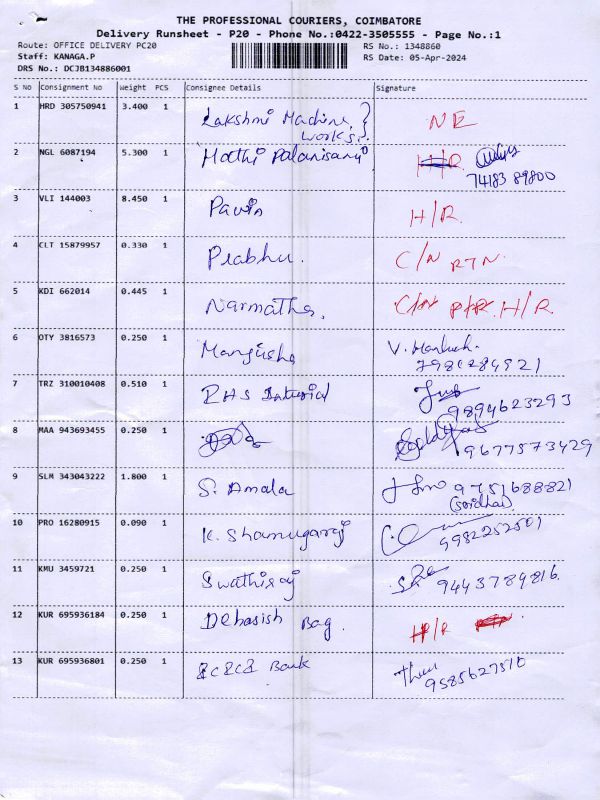 THE PROFESSIONAL COURIERS, COIMBATORE
Delivery Runsheet - P20 - Phone No.:0422-3505555 - Page No.:1
Route: OFFICE DELIVERY PC20
RS No.: 1348860
Staff: KANAGA.P
RS Date: 05-Apr-2024
DRS No.: DCJB134886001
S No Consignment No Weight PCS Consignee Details Signature
1 HRD 305750941 3.400 1 Lakshmi Machine NE
Works.
2 NGL 6087194 5.300 1 Mathi Palanisamy H/R
74183 89800
3 VLI 144003 8.450 1 Pavin H/R
4 CLT 15879957 0.330 1 Prabhu. C/N RTN
5 KDI 662014 0.445 1 Narmatha, H/R.
6 OTY 3816573 0.250 1 Manjusha V.
7981284921
7 TRZ 310010408 0.510 1 RHS
9894623293
8 MAA 943693455 0.250 1
9677573429
9 SLM 343043222 1.800 1 S. Amala 9751688821
(Sridhar)
10 PRO 16280915 0.090 1 K. Shanugaraj
11 KMU 3459721 0.250 1 Swathiraj 9443789816.
12 KUR 695936184 0.250 1 Debasish Bag. H/R
13 KUR 695936801 0.250 1 ICICI Bank
9585627510